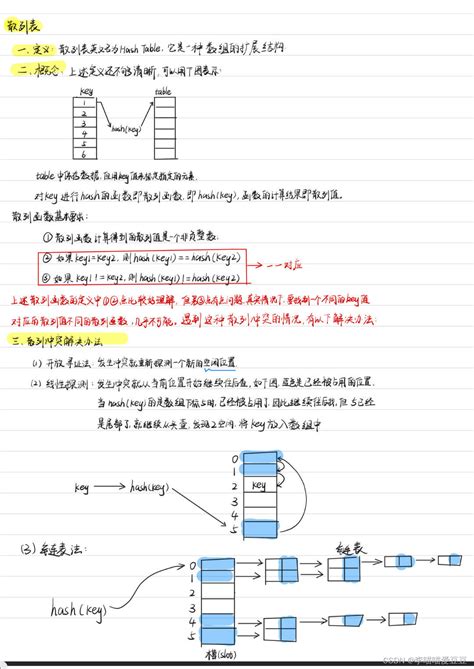 散列表
一、定义: 散列表英文名为Hash Table, 它是一种数组的扩展结构
二、概念: 上述定义还不够清晰, 可以用下图表示:
key table
1
2
3
4
5
6
hash(key)
table中保存数据, 使用key值来标志指定的元素.
对key进行hash的函数即散列函数, 即hash(key), 函数的计算结果即散列值。
散列函数基本要求:
① 散列函数计算得到的散列值是一个非负整数.
② 如果key1=key2, 则hash(key1)==hash(key2)
③ 如果key1!=key2, 则hash(key1)!=hash(key2)
一一对应
上述散列函数的定义中①②点比较好理解, 但第③点有点问题, 真实情况下, 要找到一个不同的key值
对应的散列值不同的散列函数, 几乎不可能。遇到这种散列冲突的情况, 有以下解决办法:
三、散列冲突解决办法
(1) 开放寻址法: 发生冲突就重新探测一个新的空闲位置.
(2) 线性探测: 发生冲突就从当前位置开始继续往后查, 如下图, 蓝色是已经被占用的位置.
当hash(key)的是数组下标5时, 已经被占用了, 因此继续往后找, 但5已经
是尾部了, 就继续从头查, 发现2空闲, 将key放入数组中
key hash(key)
0
1
2 key
3
4
5
(3) 链表法:
链表
hash(key)
0
1
2
3
4
5
槽(slot)